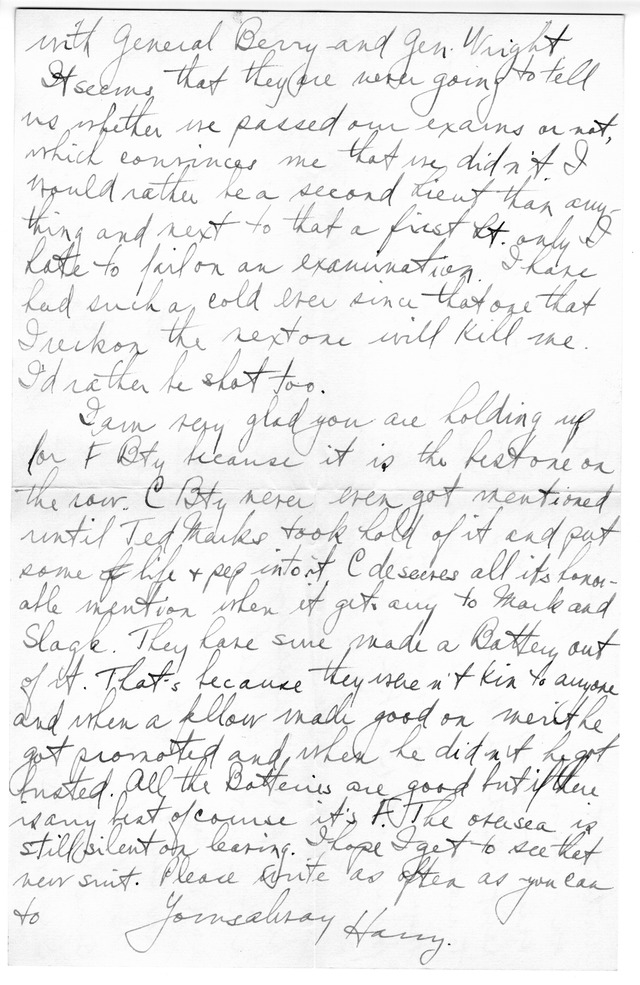 with General Berry and Gen. Wright
It seems that they are never going to tell
us whether we passed our exams or not,
which convinces me that we didn't. I
would rather be a second Lieut than any-
thing and next to that a first Lt. only I
hate to fail on an examination. I have
had such a cold ever since that one that
I reckon the next one will kill me.
I'd rather be shot too.
I am very glad you are holding up
for F Bty because it is the best one on
the row. C Bty never even got mentioned
until Ted Marks took hold of it and put
some of life & pep into it C deserves all its honor-
able mention when it gets any to Mark and
Slagle. They have sure made a Battery out
of it. That's because they weren't kin to anyone
and when a fellow made good on merit he
got promoted and when he didn't he got
busted. All the Batteries are good but if there
is any best of course it's F. The oversea is
still silent on leaving. I hope I get to see that
new suit. Please write as often as you can
to Yours always Harry.